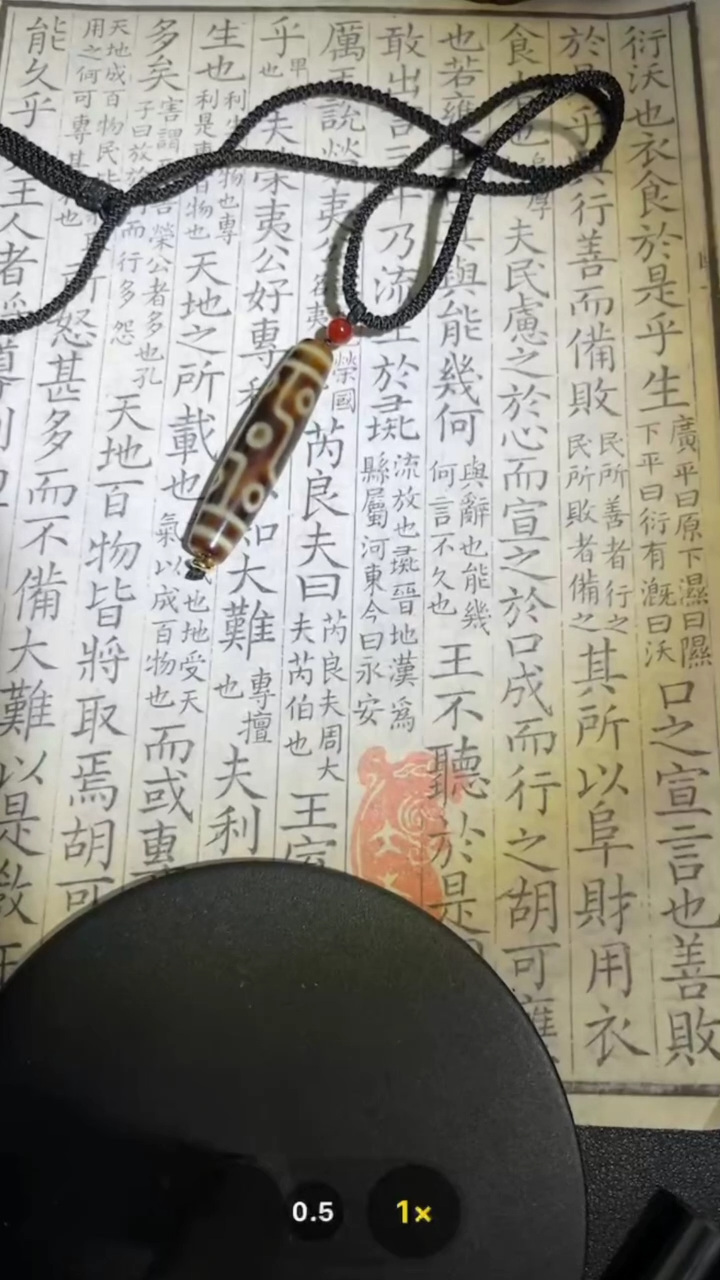 衍沃也衣食於是乎生
廣平曰原下濕曰隰
下平曰衍有溉曰沃
口之宣言也善敗
於是乎興行善而備敗
民所善者行之
民所敗者備之
其所以阜財用衣
食
厚
夫民慮之於心而宣之於口成而行之胡可壅
也若壅
與能幾何
與辭也能幾
何言不久也
王不聽於是
敢出言三年乃流王於彘
流放也彘晉地漢為
縣屬河東今曰永安
厲王說榮夷公
榮國
名夷
芮良夫曰
芮良夫周大
夫芮伯也
王室
乎
也
夫榮夷公好專利
知大難
專擅
也
夫利
生也
利生
物也專
利是專百物也
天地之所載也
地受天
氣以成百物也
而或專
多矣
害謂
榮公者多也孔
子曰放於
而行多怨
天地百物皆將取焉胡可
天地成百物民
用之何可專其
也
所怒甚多而不備大難以是教王
能久乎
王人者將導利